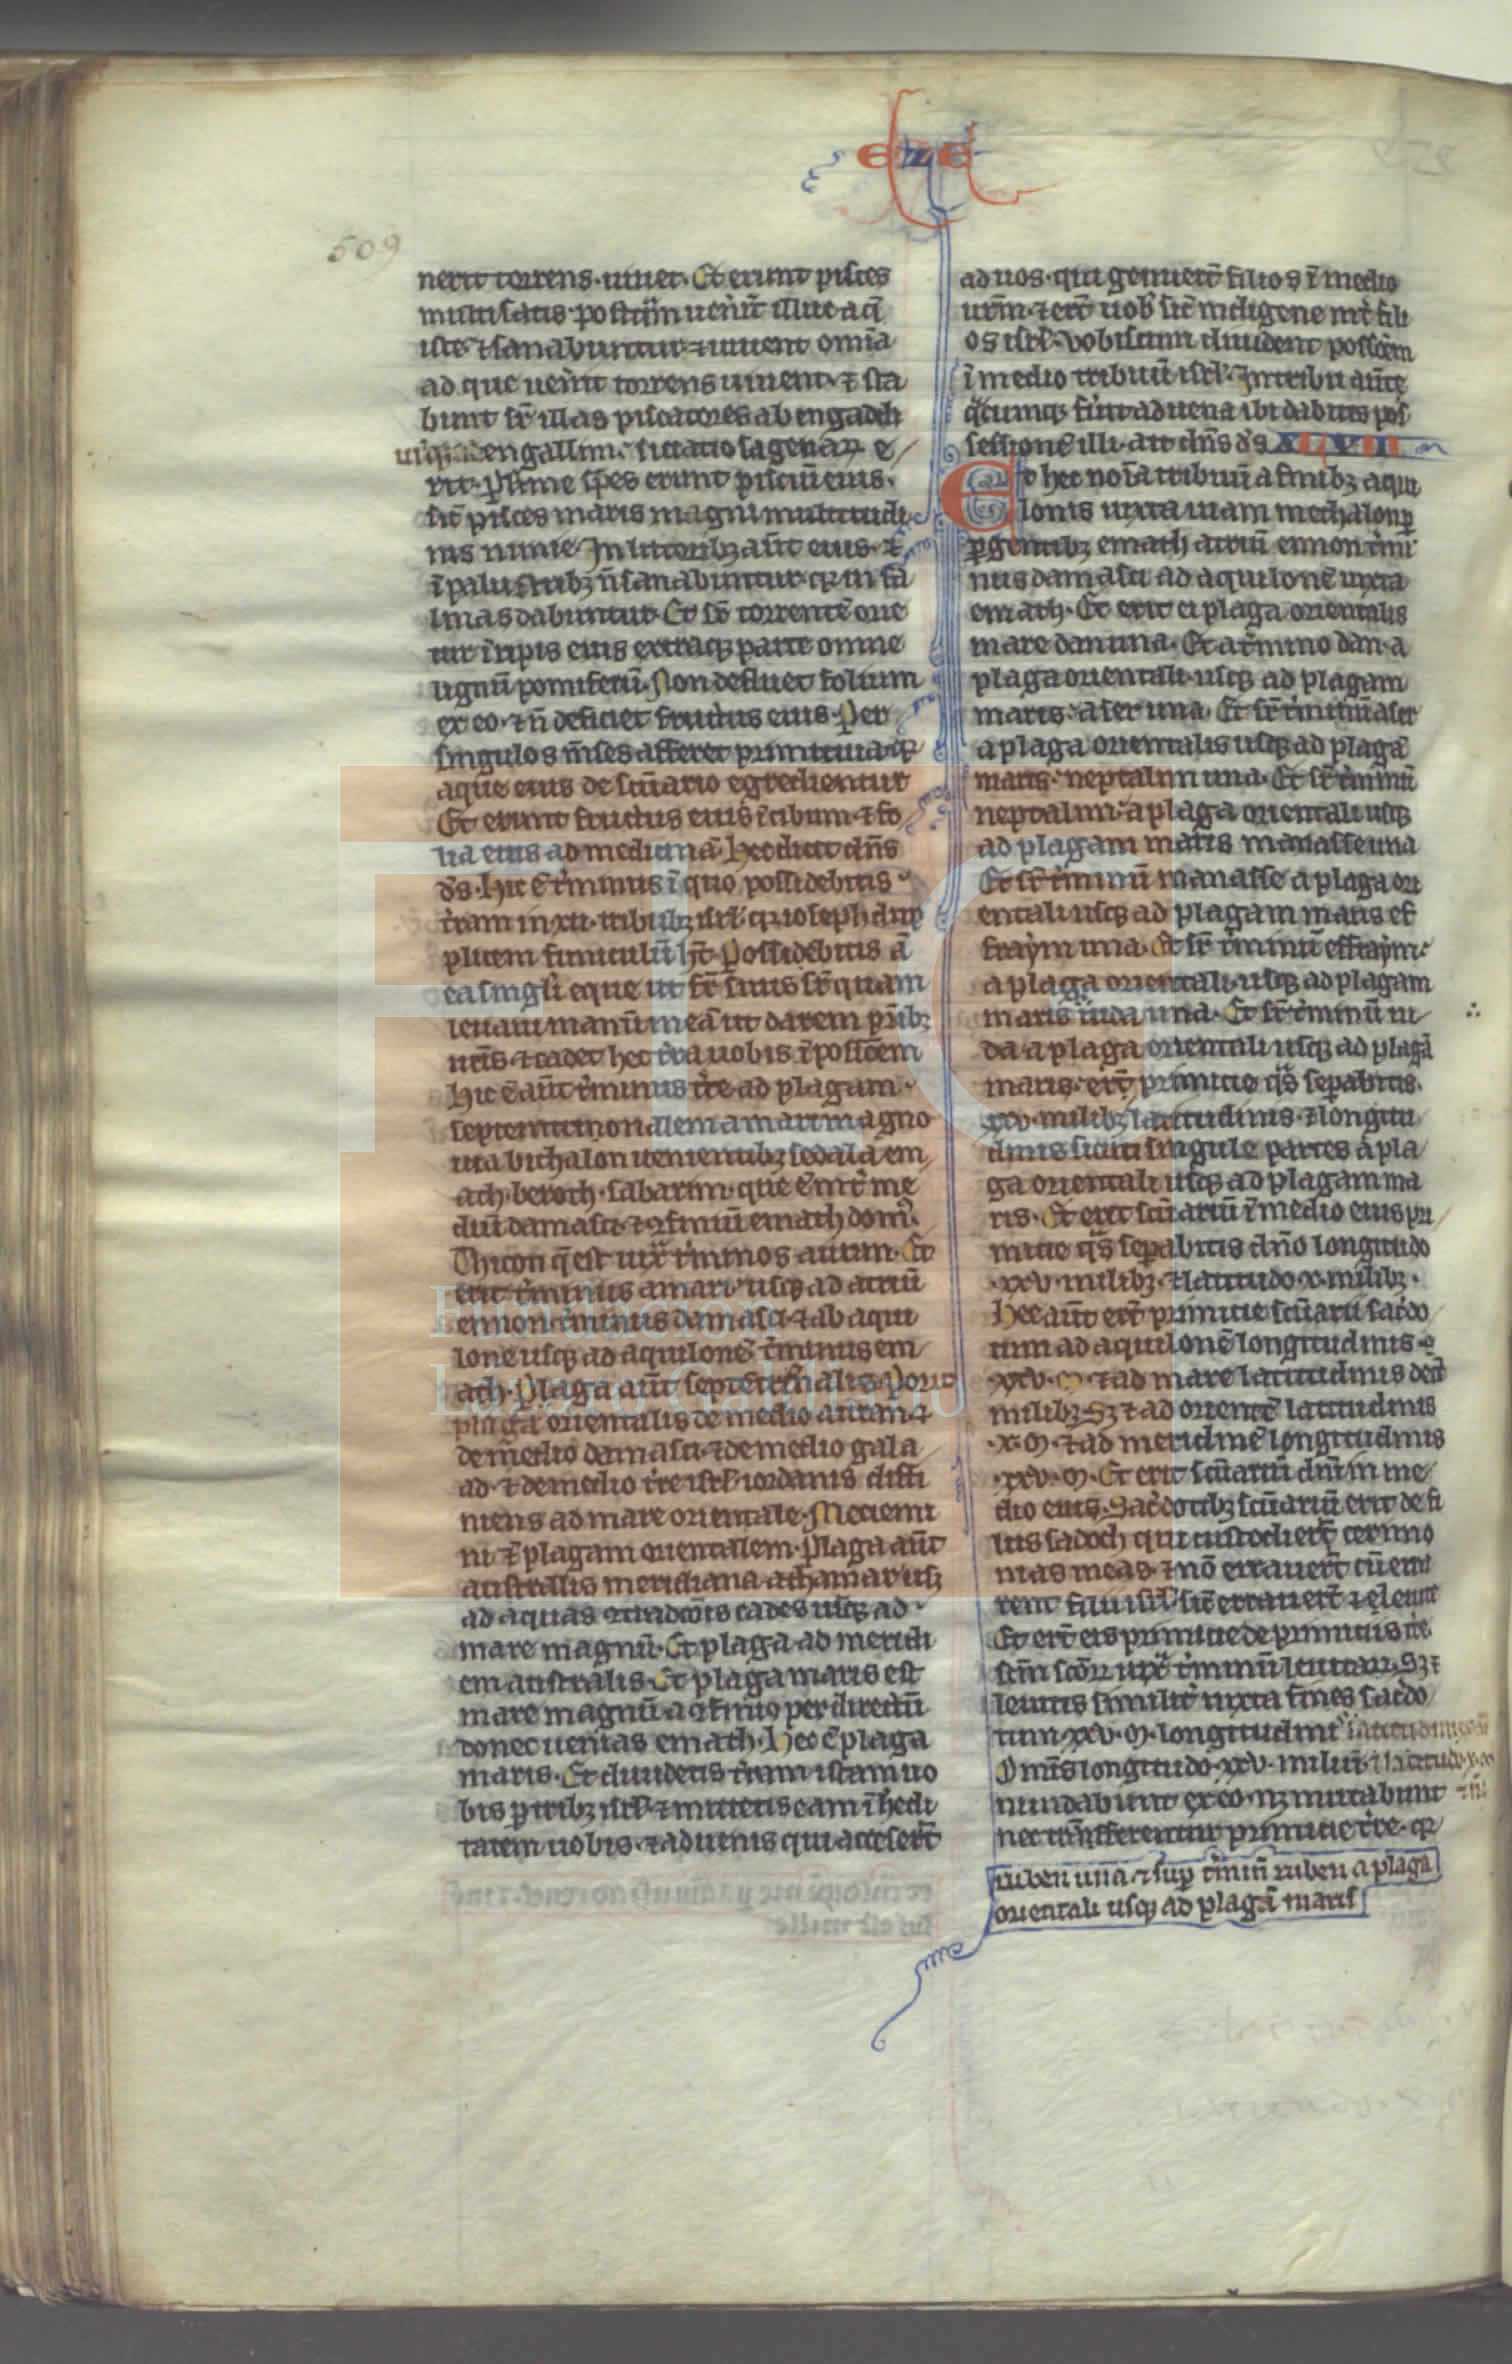 eze
509
nerit torrens· uiuet· Et erunt pisces
multi satis· postq̃m uen̾int illuc aq̃
iste· ⁊ sanabuntur· ⁊ uiuent omĩa
ad que uen̾it torrens uiuent· ⁊ sta
bunt sr̃ illas piscatores ab engaddi
engallim· siccatio sagenaꝝ e
rit· Pl̾ime spẽs erunt pisciũ eius·
sic̃ pisces maris magni multitudi
nis nimie· In litoribꝫ aũt eius· ⁊
ĩ palustribꝫ ñ sanabuntur· qꝛ in sa
linas dabuntur· Et sr̃ torrentẽ orie
tur ĩ ripis eius ex utraqꝫ parte omne
lignũ pomiferũ· Non defluet folium
ex eo· ⁊ ñ deficiet fructus eius· Per
singulos m̃ses afferet primitiua· qꝛ
aque eius de scũario egredientur
Et erunt fructus eius ĩ cibum· ⁊ fo
lia eius ad medicinã· Hec dicit dñs
ds̃· Hic ẽ t̾minus ĩ quo possidebitis
t̾ram in xii· tribubꝫ isrl̃· qꝛ ioseph dup
plicem funiculũ hꝫ̃· Possidebitis ã
ea singl̃i eque ut fr̃ suus sr̃ quam
leuaui manũ meã ut darem pr̃ibꝫ
ur̃is· ⁊ cadet hec t̾ra uobis ĩ poss̃oem
Hic ẽ aũt t̾minus t̾re ad plagam
septentrionalem a mari magno
uia bethalon uenientibꝫ sedala em
ach· beroth· sabarim· que ẽ int̾ me
diũ damasci· ⁊ ꝯfiniũ emath dom̾·
Thicon q̃ est iux̃ t̾minos auran· Et
erit t̾minus a mari· usqꝫ ad atriũ
ennon· t̾minus damasci· ⁊ ab aqui
lone usqꝫ ad aquilonẽ· t̾minus em
ath· Plaga aũt septẽtrĩnalis· Porro
plaga orientalis de medio auran· ⁊
de medio damasci· ⁊ de medio gala
ad· ⁊ de medio t̾re isrl̃· iordanis disti
nens ad mare orientale· Meciemi
ni ⁊ plagam orientalem· Plaga aũt
australis meridiana· a thamar usqꝫ
ad aquas ꝯtradcõis cades usqꝫ ad
mare magnũ· Et plaga ad meridi
em australis· Et plaga maris est
mare magnũ a ꝯfinio per directũ
donec uenias emath· Hec ẽ plaga
maris· Et diuidetis t̾ram istam uo
bis p̱ tribꝫ isrl̃· ⁊ mittetis eam ĩ hedi
tatem uobis· ⁊ aduenis qui accesser̃t
ad uos· qui genuer̃t filios ĩ medio
ur̃m· ⁊ er̃t uob̾ sic̃ indigene int̾ fili
os isrl̃· Vobiscum diuident poss̃oem
ĩ medio tribuũ isrl̃· In tribu aũte
q̃cumqꝫ fũit aduena ibi dabitis pos
sessionẽ illi· ait dñs ds̃ XLVIII
Et hec noĩa tribuũ a finibꝫ aqui
lonis iuxta uiam methalon p̱
p̱gentibꝫ emath atriũ ennon t̾mi
nus damasci ad aquilonẽ iuxta
emath· Et erit ei plaga orientalis
mare dan una· Et a t̾mino dan· a
plaga orientali· usqꝫ ad plagam
maris· aser una· Et sr̃ t̾minũ aser
a plaga orientalis usqꝫ ad plagã
maris· neptalim una· Et sr̃ t̾minũ
neptalim· a plaga orientali usqꝫ
ad plagam maris manasse una
Et sr̃ t̾minũ manasse a plaga ori
entali usqꝫ ad plagam maris ef
fraym una· Et sr̃ t̾minũ effraym·
a plaga orientali· usqꝫ ad plagam
maris iuda una· Et sr̃ t̾minũ iu
da· a plaga orientali usqꝫ ad plagã
maris· er̃t primitie q̃s sep̱abitis·
xxv· milibꝫ latitudinis· ⁊ longitu
dinis sicuti singule partes a pla
ga orientali usqꝫ ad plagam ma
ris· Et erit scũariũ ĩ medio eius pri
mitie q̃s sep̱abitis dño longitudo
·xxv· milibꝫ· ⁊ latitudo x· milibꝫ·
Hee aũt er̃t primitie scũarii sac̾do
tum ad aquilonẽ longitudinis·
·xxv· ꝳ· ⁊ ad mare latitudinis decẽ
milibꝫ· Sꝫ ⁊ ad orientẽ latitudinis
·x· ꝳ· ⁊ ad meridiẽ longitudinis
·xxv· ꝳ· Et erit scũariũ dñi in me
dio eius· Sac̾dotibꝫ scũariũ erit de fi
liis sadoch qui custodier̃t cerimo
nias meas· ⁊ nõ errauer̃t cũ erra
rent filii isrl̃· sic̃ errauer̃t ⁊ leuite
Et er̃t eis primitie de primitiis t̾re
scm̃ scõꝝ iux̃ t̾minũ leuitaꝝ· Sꝫ ⁊
leuitis similit̾ iuxta fines sac̾do
tum xxv· ꝳ· longitudinis latitudinis
Om̃is longitudo· xxv· miliũ· ⁊ latitudo· x· ꝳ
nundabunt ex eo· nꝫ mutabunt
nec trãsferentur primitie t̾re· qꝛ
ruben una· ⁊ sup̱ t̾minũ ruben a plaga
orientali usqꝫ ad plagã maris